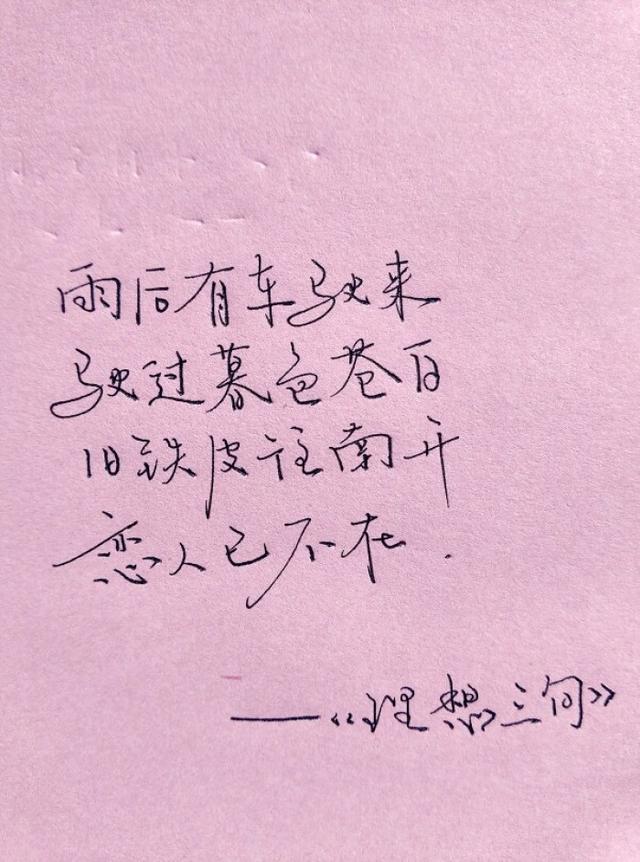 雨后有车驶来
驶过暮色苍白
旧铁皮往南开
恋人已不在.
——《理想三旬》